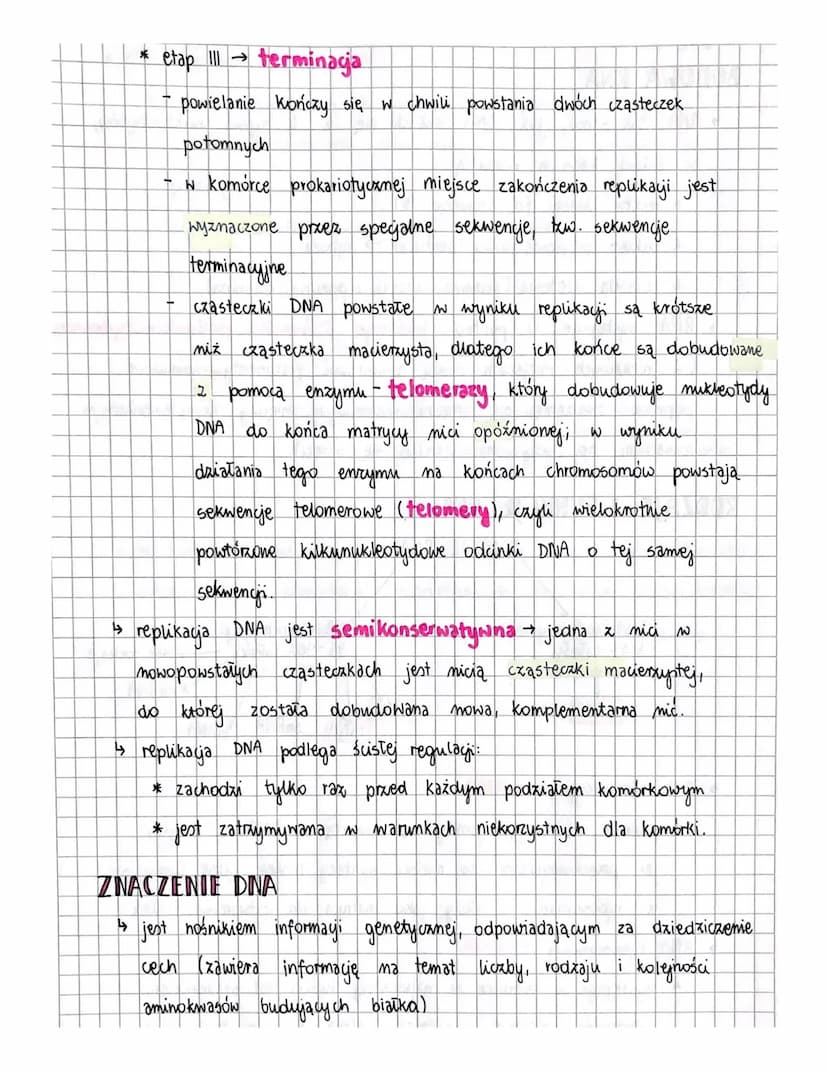 * etap III → terminacja
- powielanie kończy się w chwili powstania dwóch cząsteczek
potomnych
- w komórce prokariotycznej miejsce zakończenia replikacji jest
wyznaczone przez specjalne sekwencje, tzw. sekwencje
terminacyjne
- cząsteczki DNA powstałe w wyniku replikacji są krótsze
niż cząsteczka macierzysta, dlatego ich końce są dobudowane
z pomocą enzymu - telomerazy, który dobudowuje nukleotydy
DNA do końca matrycy nici opóźnionej; w wyniku
działania tego enzymu na końcach chromosomów powstają
sekwencje telomerowe (telomery), czyli wielokrotnie
powtórzone kilkunukleotydowe odcinki DNA o tej samej
sekwencji.
↳ replikacja DNA jest semikonserwatywna → jedna z nici w
nowopowstałych cząsteczkach jest nicią cząsteczki macierzystej,
do której została dobudowana nowa, komplementarna nić.
↳ replikacja DNA podlega ścisłej regulacji:
* zachodzi tylko raz przed każdym podziałem komórkowym
* jest zatrzymywana w warunkach niekorzystnych dla komórki.
ZNACZENIE DNA
↳ jest nośnikiem informacji genetycznej, odpowiadającym za dziedziczenie
cech (zawiera informację na temat liczby, rodzaju i kolejności
aminokwasów budujących białka)